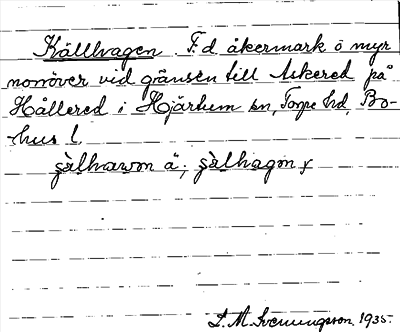 Källhagen F.d. åkermark ö myr
norröver vid gränsen till Askered på
Hållered i Hjärtum sn, Torpe hd, Bo-
hus l.
s̡älhawon ä; s̡älhagon y
S. M. Svenungsson. 1935.